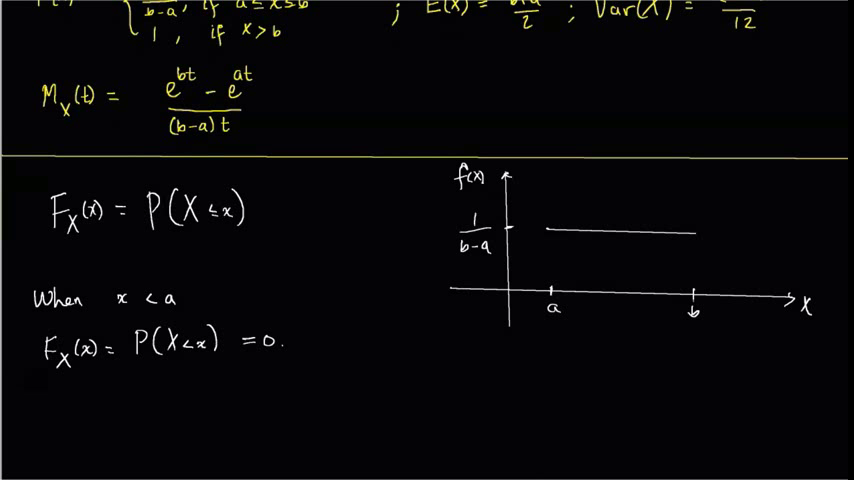 b-a , if a≤x≤b
1 , if x>b
; E(X) = 2 ; Var(X) = 12
M_X(t) = e^{bt} - e^{at} / (b-a)t
F_X(x) = P(X ≤ x)
When x < a
F_X(x) = P(X < x) = 0.
f(x)
1 / b-a
a
b
X